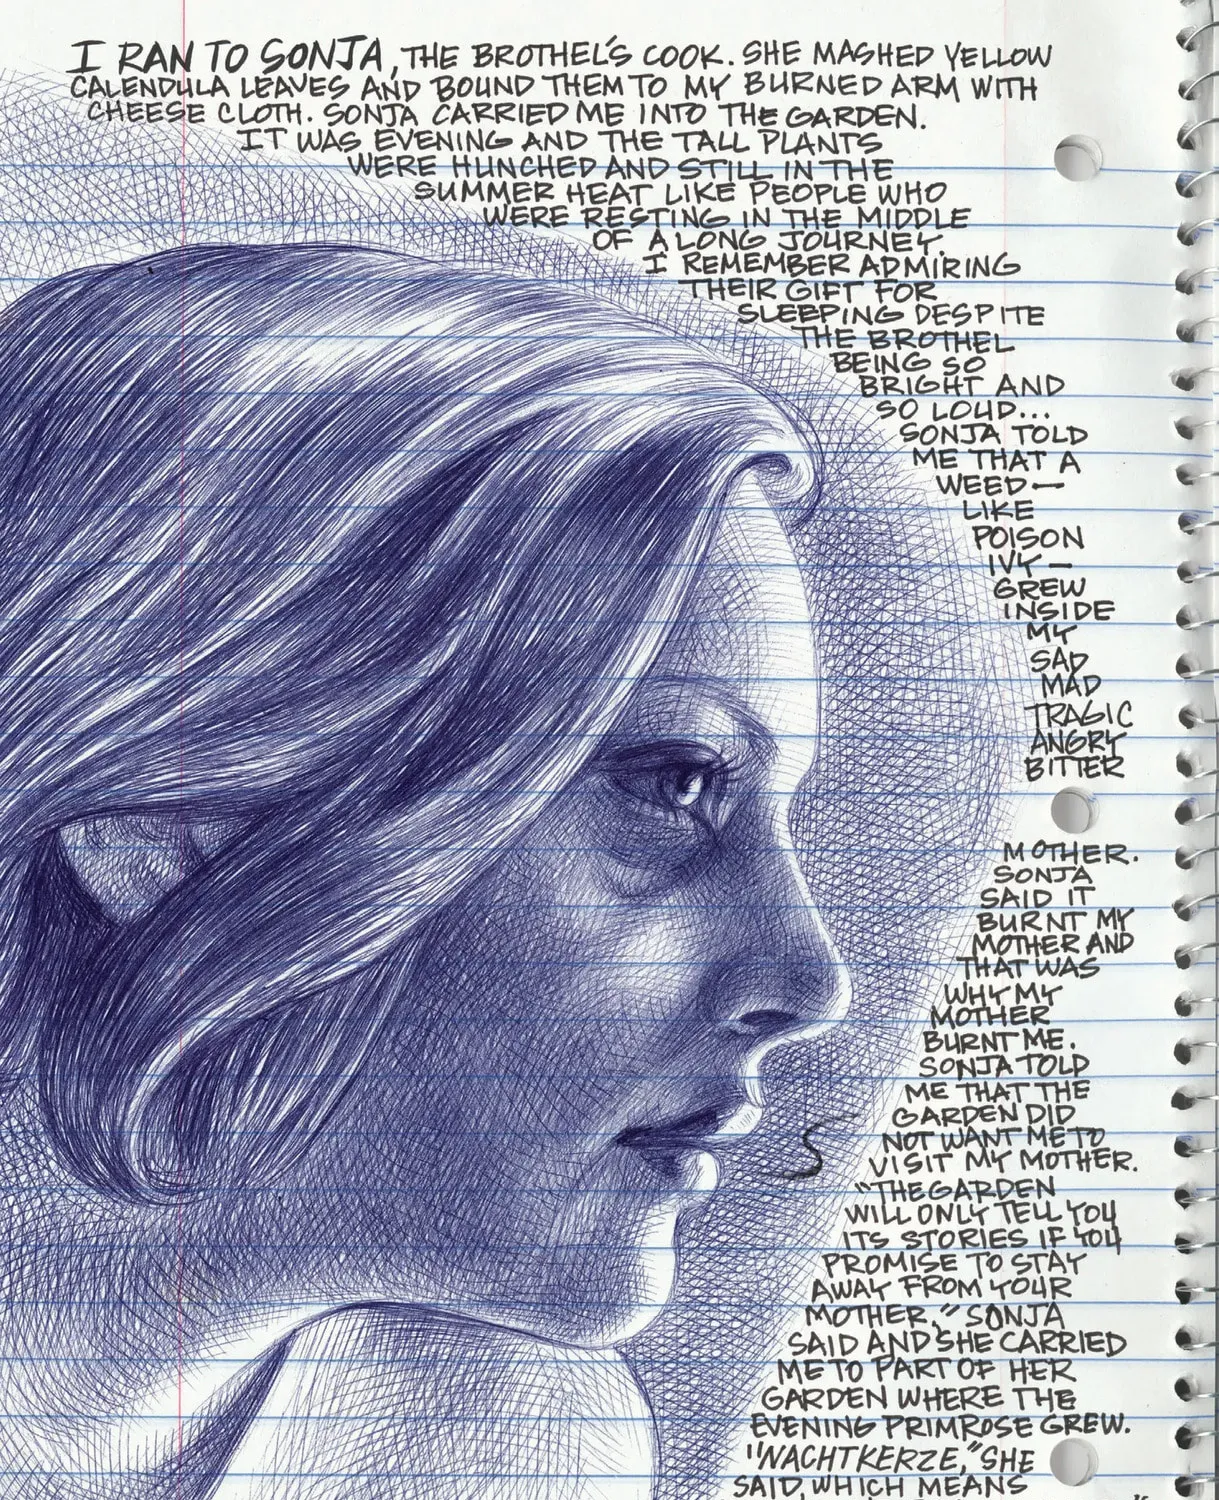 I RAN TO SONJA, THE BROTHEL'S COOK. SHE MASHED YELLOW
CALENDULA LEAVES AND BOUND THEM TO MY BURNED ARM WITH
CHEESE CLOTH. SONJA CARRIED ME INTO THE GARDEN.
IT WAS EVENING AND THE TALL PLANTS
WERE HUNCHED AND STILL IN THE
SUMMER HEAT LIKE PEOPLE WHO
WERE RESTING IN THE MIDDLE
OF A LONG JOURNEY.
I REMEMBER ADMIRING
THEIR GIFT FOR
SLEEPING DESPITE
THE BROTHEL
BEING SO
BRIGHT AND
SO LOUD...
SONJA TOLD
ME THAT A
WEED—
LIKE
POISON
IVY—
GREW
INSIDE
MY
SAD
MAD
TRAGIC
ANGRY
BITTER
MOTHER.
SONJA
SAID IT
BURNT MY
MOTHER AND
THAT WAS
WHY MY
MOTHER
BURNT ME.
SONJA TOLD
ME THAT THE
GARDEN DID
NOT WANT ME TO
VISIT MY MOTHER.
"THE GARDEN
WILL ONLY TELL YOU
ITS STORIES IF YOU
PROMISE TO STAY
AWAY FROM YOUR
MOTHER," SONJA
SAID AND SHE CARRIED
ME TO PART OF HER
GARDEN WHERE THE
EVENING PRIMROSE GREW.
"NACHTKERZE," SHE
SAID, WHICH MEANS